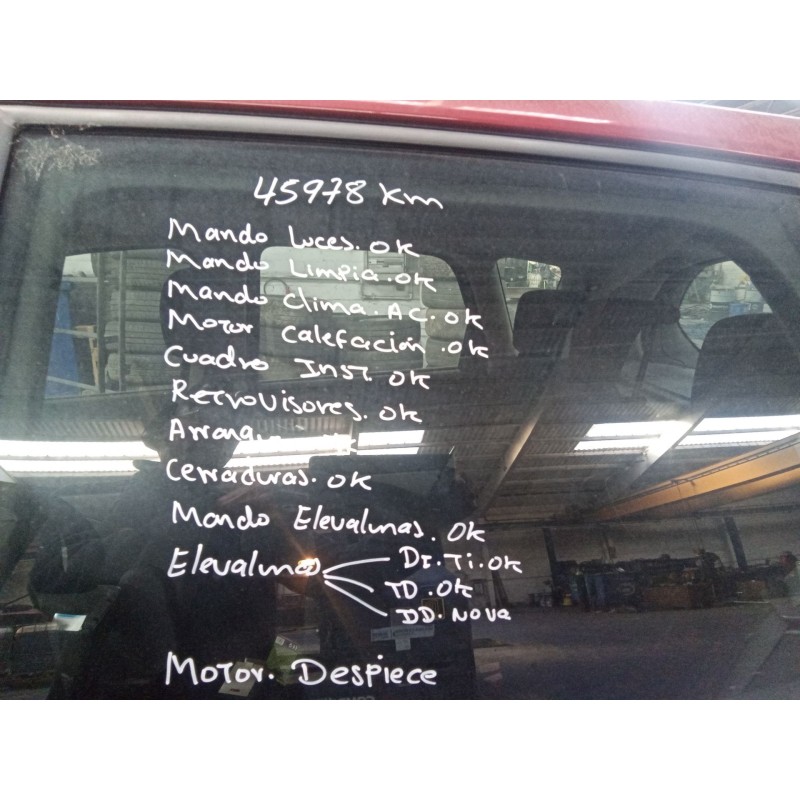 45978 Km
Mando Luces. OK
Mando Limpia. OK
Mando Clima. AC. OK
Motor Calefación. OK
Cuadro Inst. OK
Retrovisores. OK
Cerraduras. OK
Mando Elevalunas. OK
Elevalunas
DI. TI. OK
TD. OK
DD. No va
Motor. Despiece